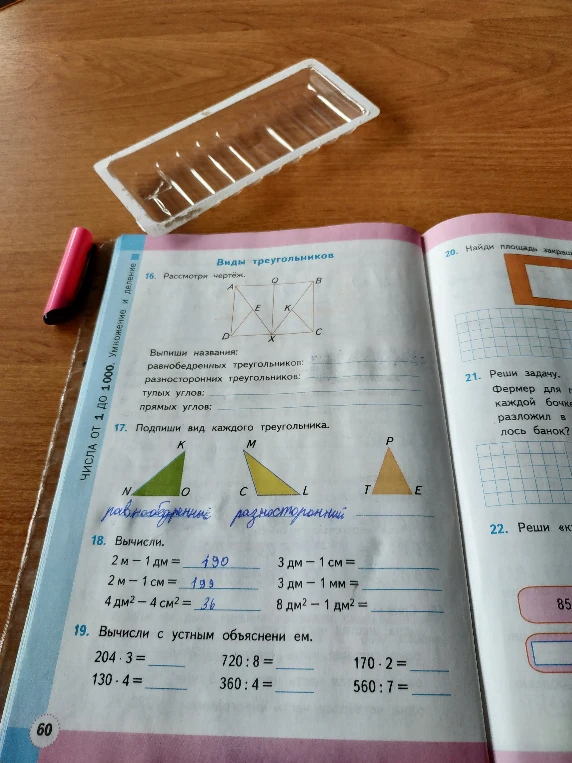 Виды треугольников
16. Рассмотри чертёж.
A O B
E K
D X C
Выпиши названия:
равнобедренных треугольников:
разносторонних треугольников:
тупых углов:
прямых углов:
17. Подпиши вид каждого треугольника.
K M P
N O C L T E
равнобедренный разносторонний
18. Вычисли.
2 м – 1 дм = 190 3 дм – 1 см =
2 м – 1 см = 199 3 дм – 1 мм =
4 дм² – 4 см² = 36 8 дм² – 1 дм² =
19. Вычисли с устным объяснени ем.
204 · 3 = 720 : 8 = 170 · 2 =
130 · 4 = 360 : 4 = 560 : 7 =
60
ЧИСЛА ОТ 1 ДО 1000. Умножение и деление
20. Найди площадь
21. Реши задачу.
Фермер для
каждой
разложил в
лось банок?
22. Реши
85